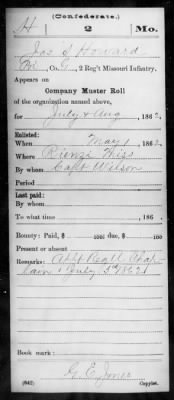 (Confederate.)
H 2 Mo.
Jas S Howard
Co. G, 2 Reg't Missouri Infantry.
Appears on
Company Muster Roll
of the organization named above,
for July & Aug, 1862.
Enlisted:
When May 1, 1862.
Where Rienzi Miss
By whom Capt Wilson
Period
Last paid:
By whom
To what time , 186 .
Bounty: Paid, $ 100; due $ 100
Present or absent
Remarks: Appt Regtl Chap
lain July 5th 1862
Book mark:
(642) G. E. Jones
Copyist.